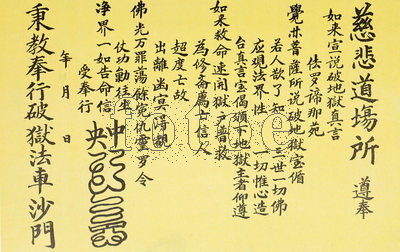 慈悲道場所 遵奉
如来宣说破地獄真言
佉罗諦那苑
覺亦菩薩所说破地獄宝偈
若人散了知 三世一切佛
应观法界性 一切惟心造
台真言宝偈頒下地獄主者仰遵
如来救命速開獄户普救
為修斋薦士信人
超度亡故
出離幽冥
佛光万罪蕩餘冤仇靈罗令
仗功勳往生
净界一如告命信
受奉行
年 月 日
中央
秉教奉行破獄法車沙門